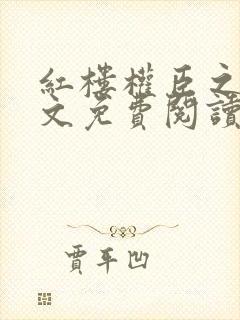 紅樓權臣之
文免費閱讀
賈平凹